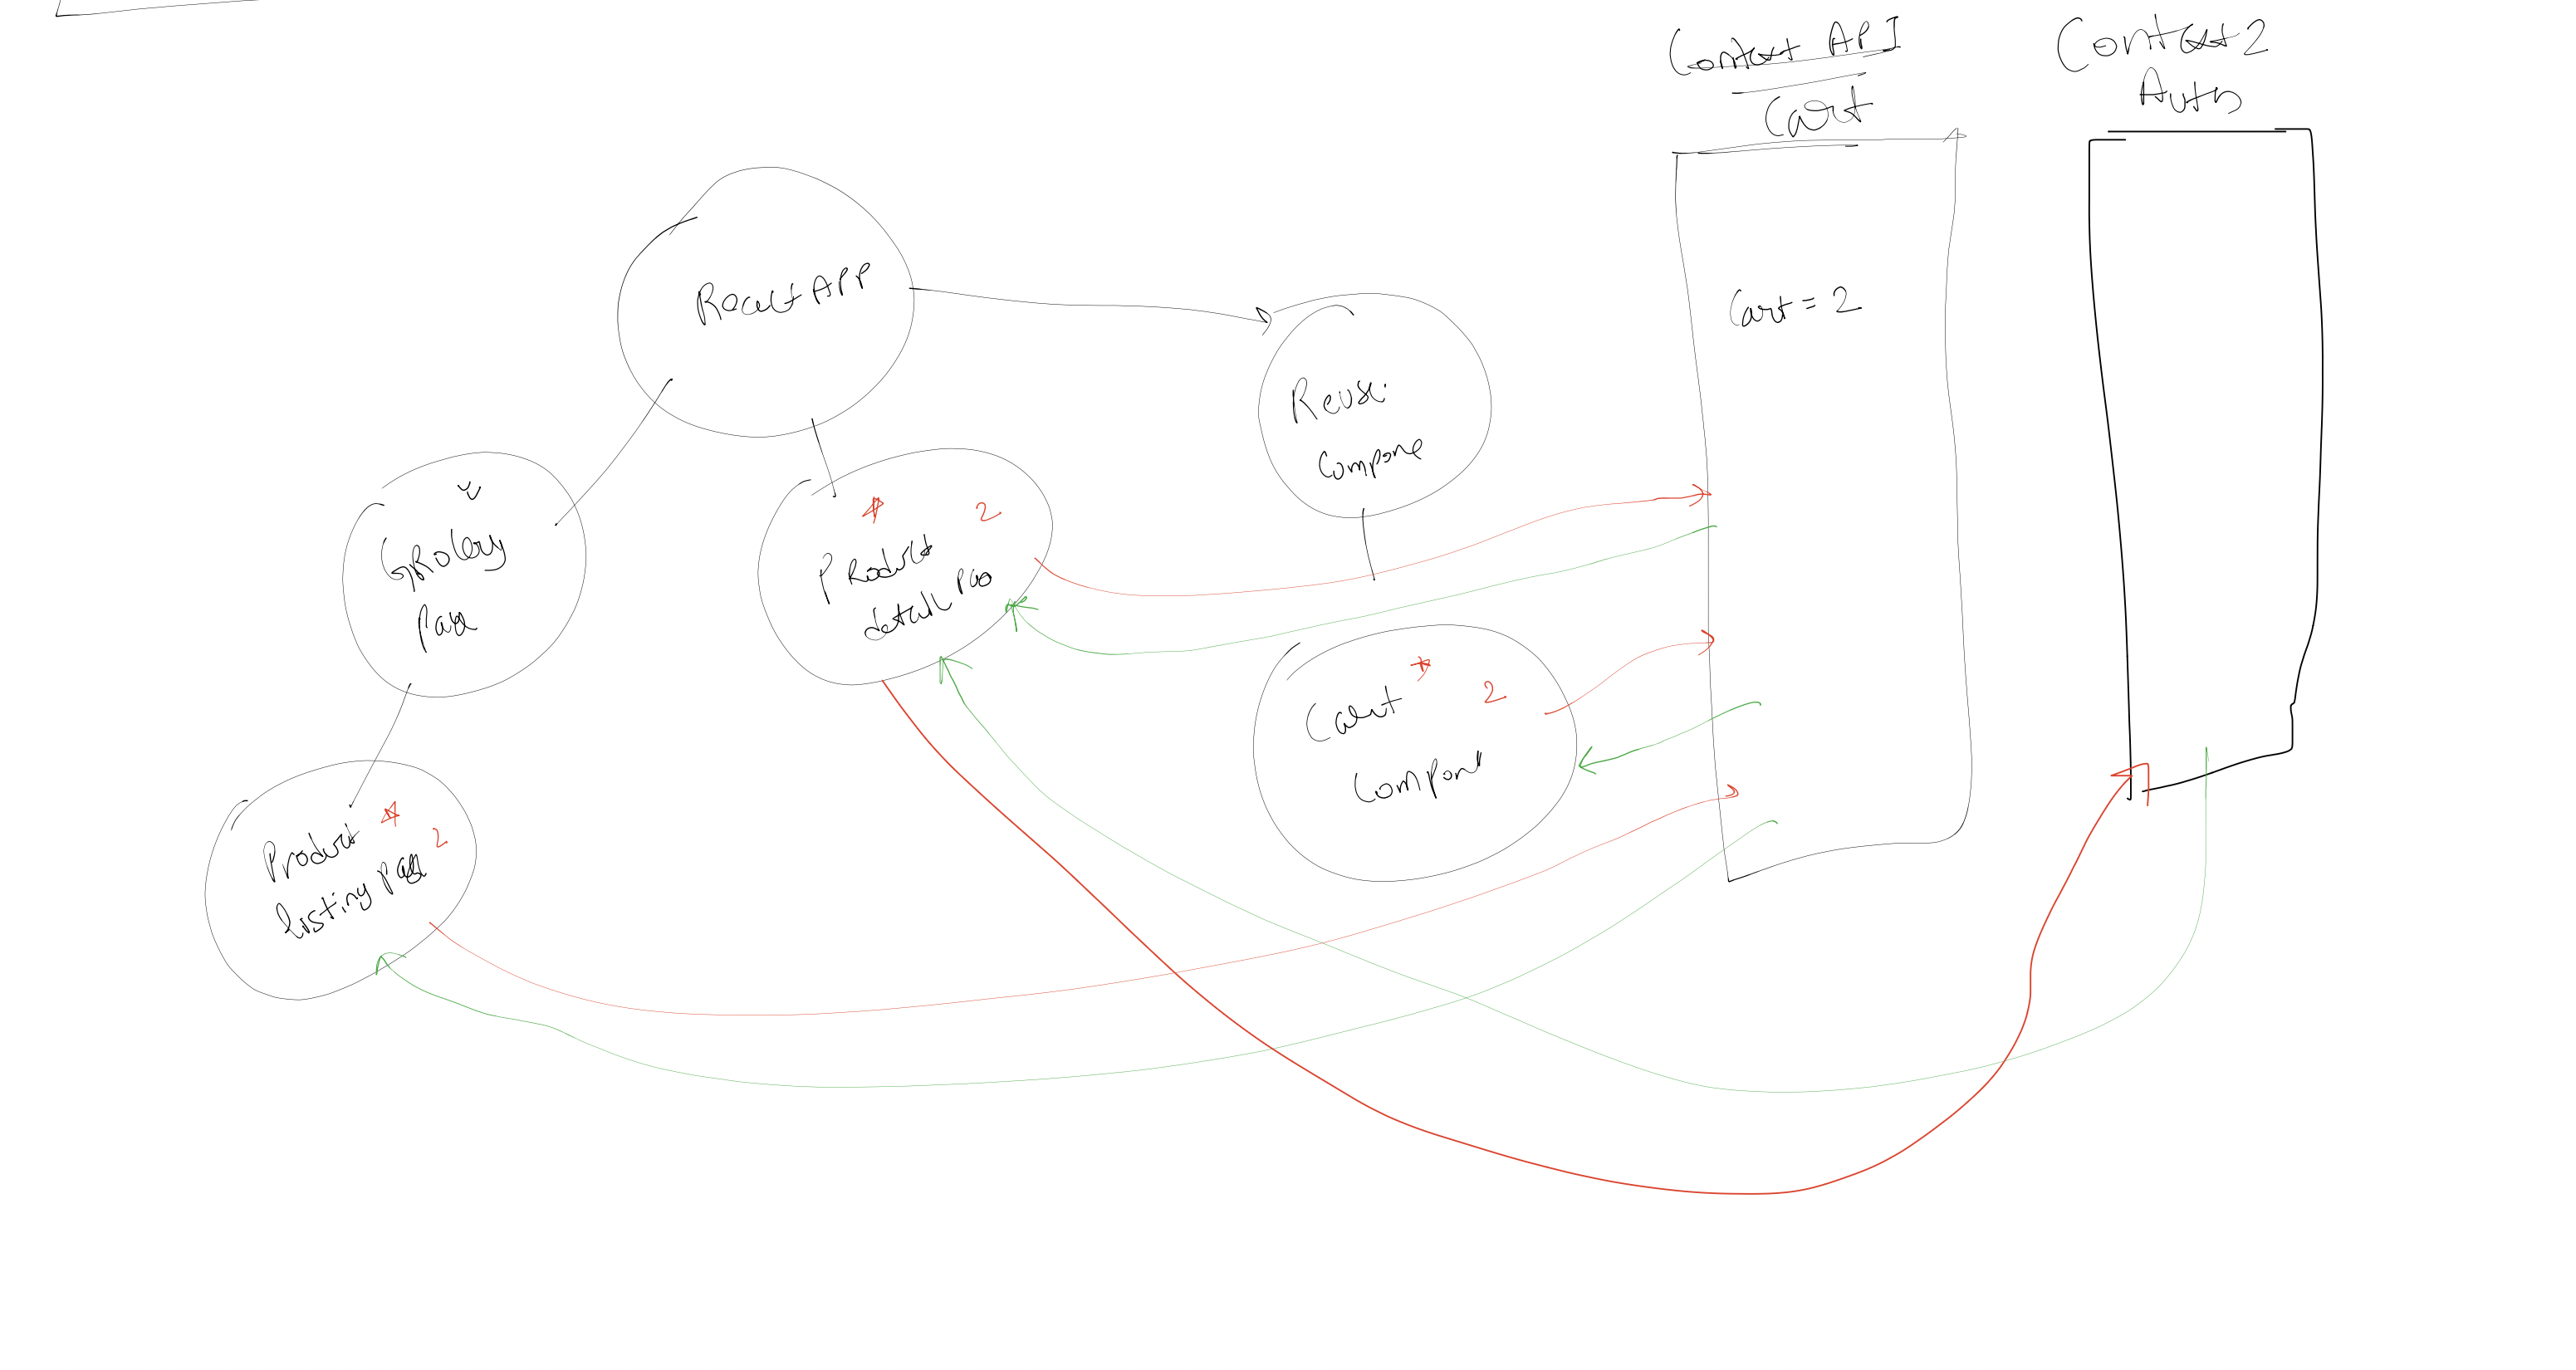 Context API
Cart
Context 2
Auth
React APP
Cart = 2
Reuse.
Compone
Grocery
Page
2
Product
detail Pag
Cart
2
Compont
Product
2
listing page